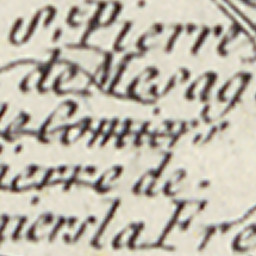 S.^t Pierre
de Mesag
le Comiers
ierre de
miers la Fre